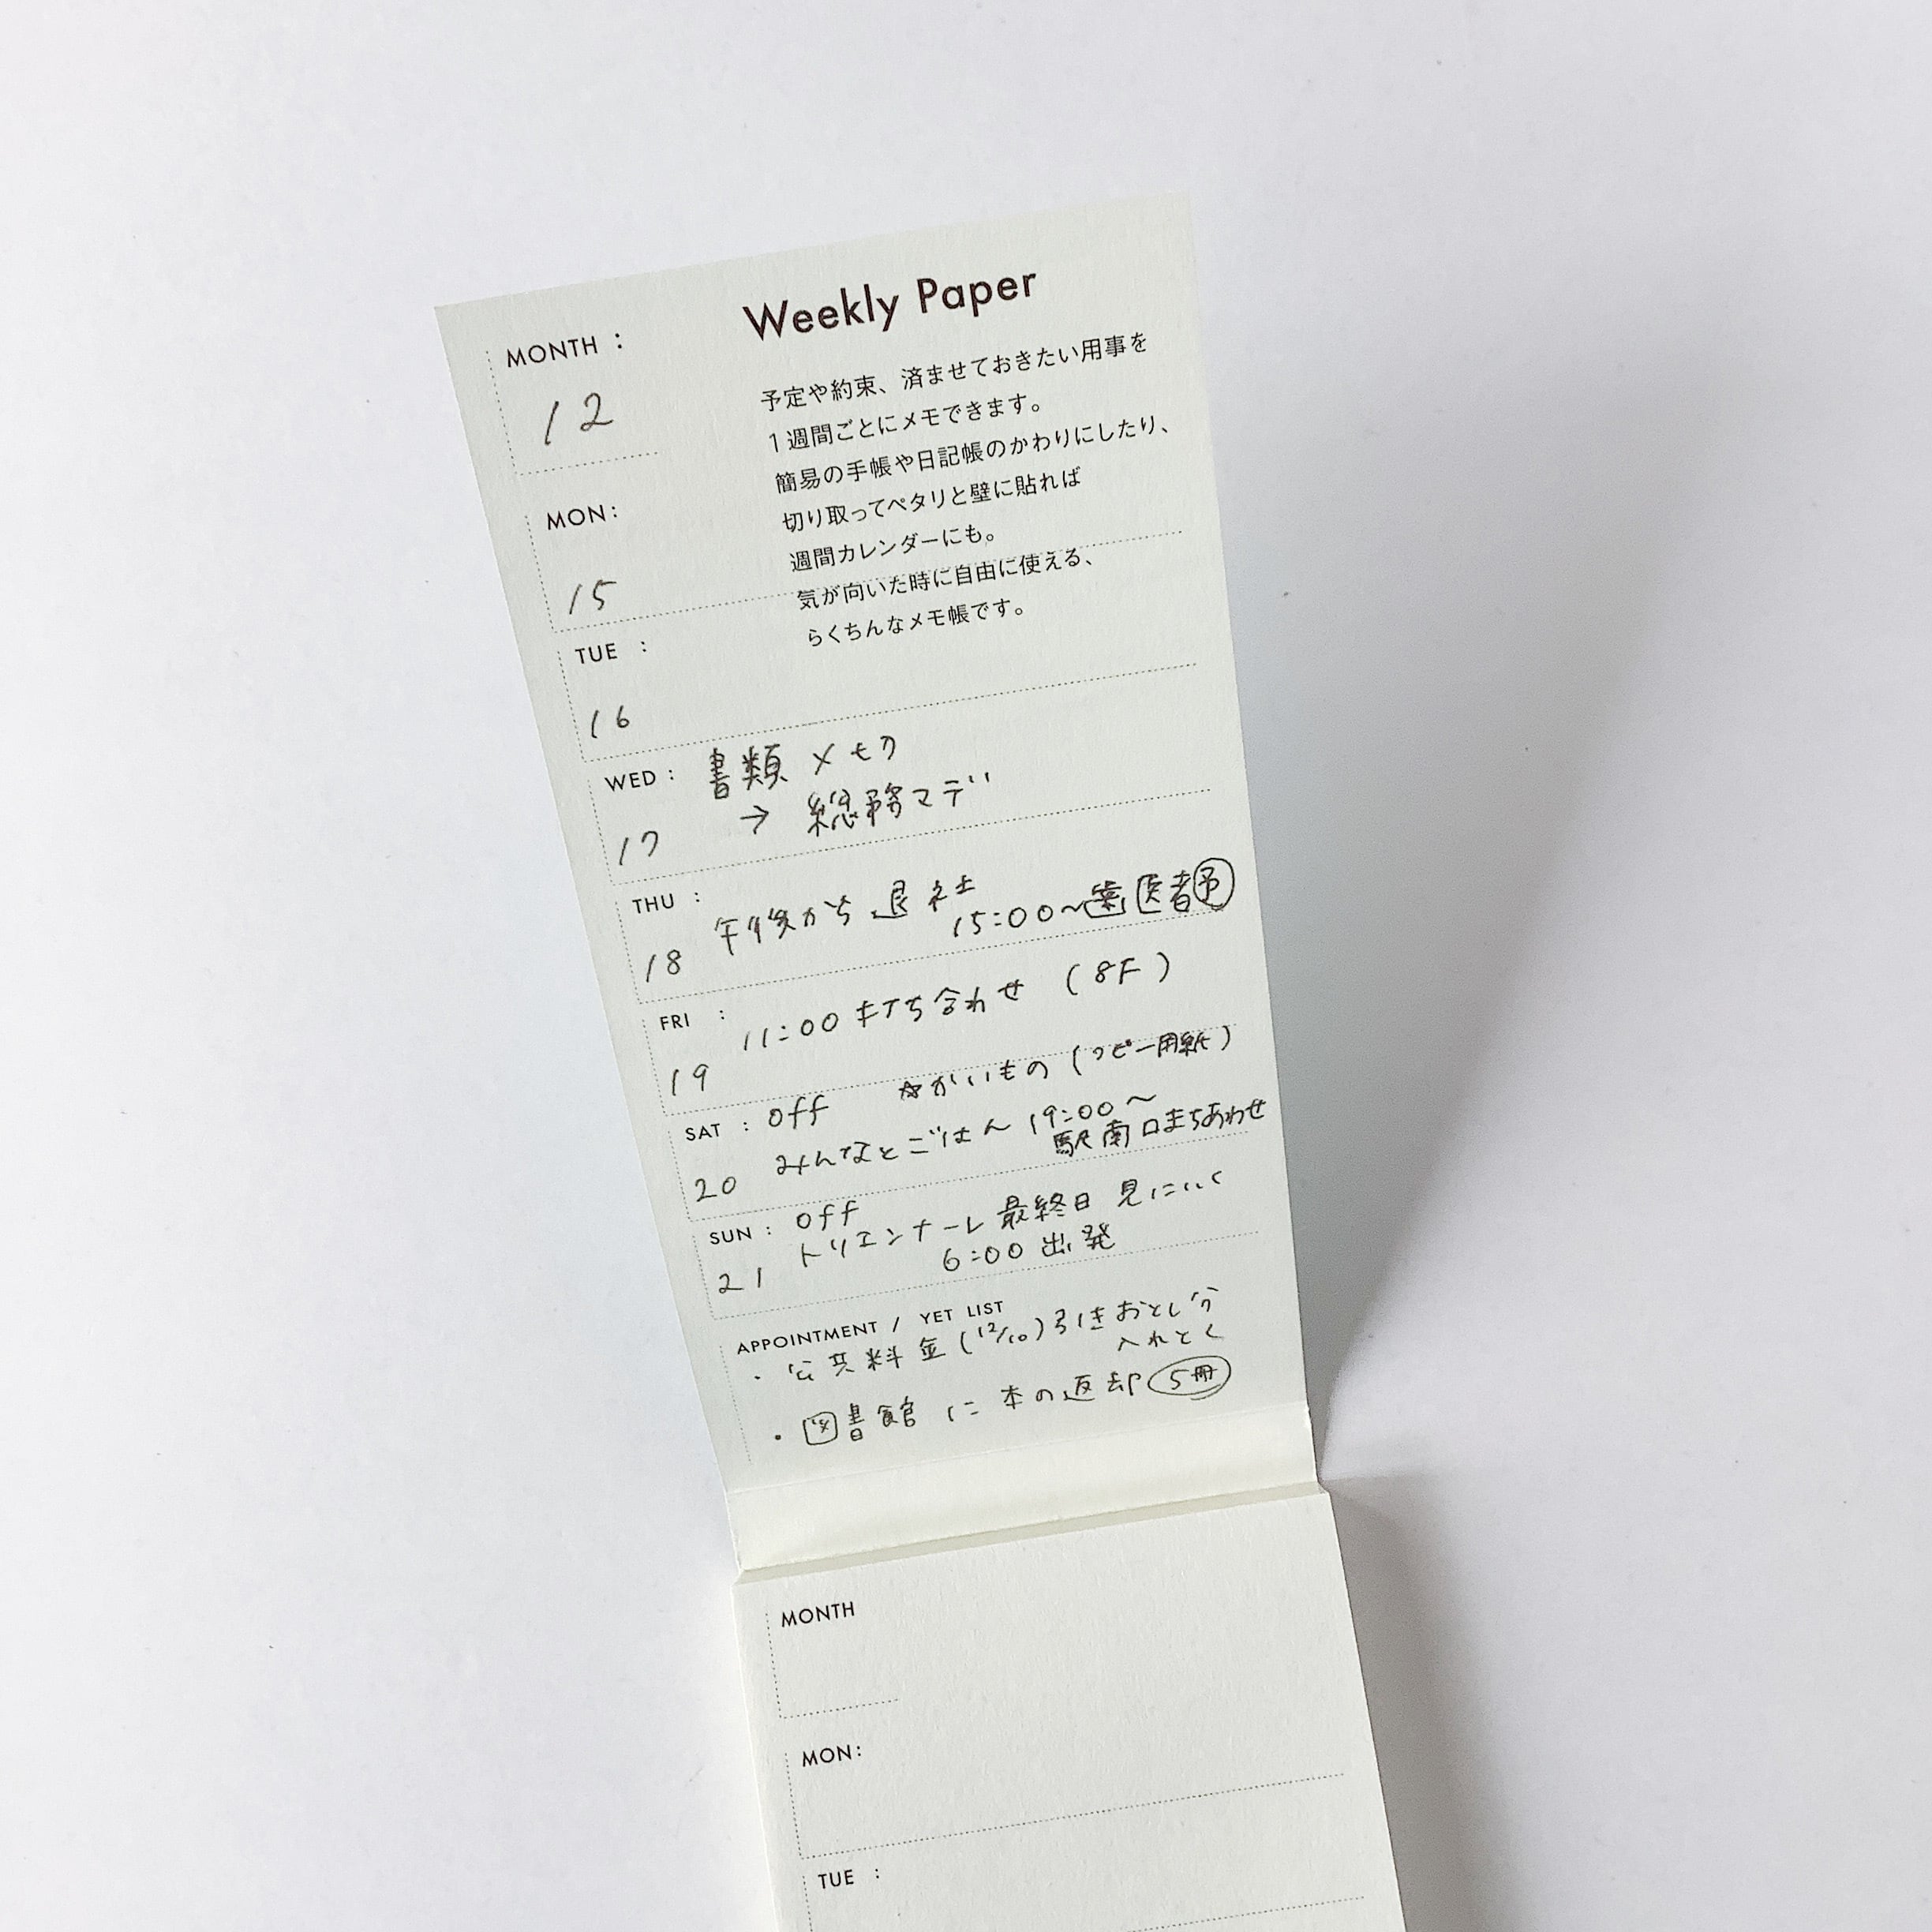 Weekly Paper
MONTH :
12
予定や約束、済ませておきたい用事を
1週間ごとにメモできます。
簡易の手帳や日記帳のかわりにしたり、
切り取ってペタリと壁に貼れば
週間カレンダーにも。
気が向いた時に自由に使える、
らくちんなメモ帳です。
MON:
15
TUE :
16
WED : 書類 〆切
17 → 総務マデ
THU : 午後から退社
18 15:00〜歯医者予
FRI : 11:00 打ち合わせ (8F)
19 ☆かいもの (コピー用紙)
SAT : off
20 みんなとごはん 19:00〜
駅南口まちあわせ
SUN : off
21 トリエンナーレ 最終日 見にいく
6:00 出発
APPOINTMENT / YET LIST
・公共料金(12/10)引きおとし分
入れとく
・図書館に本の返却 5冊
MONTH
MON:
TUE :